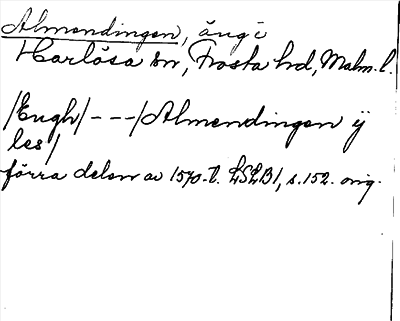 Almendingen, äng i
Harlösa sn, Frosta hd, Malm. l.
/Engh/ - - -/Almendingen ij
les/
förra delen av 1570-t. LSLB1, s. 152. orig.